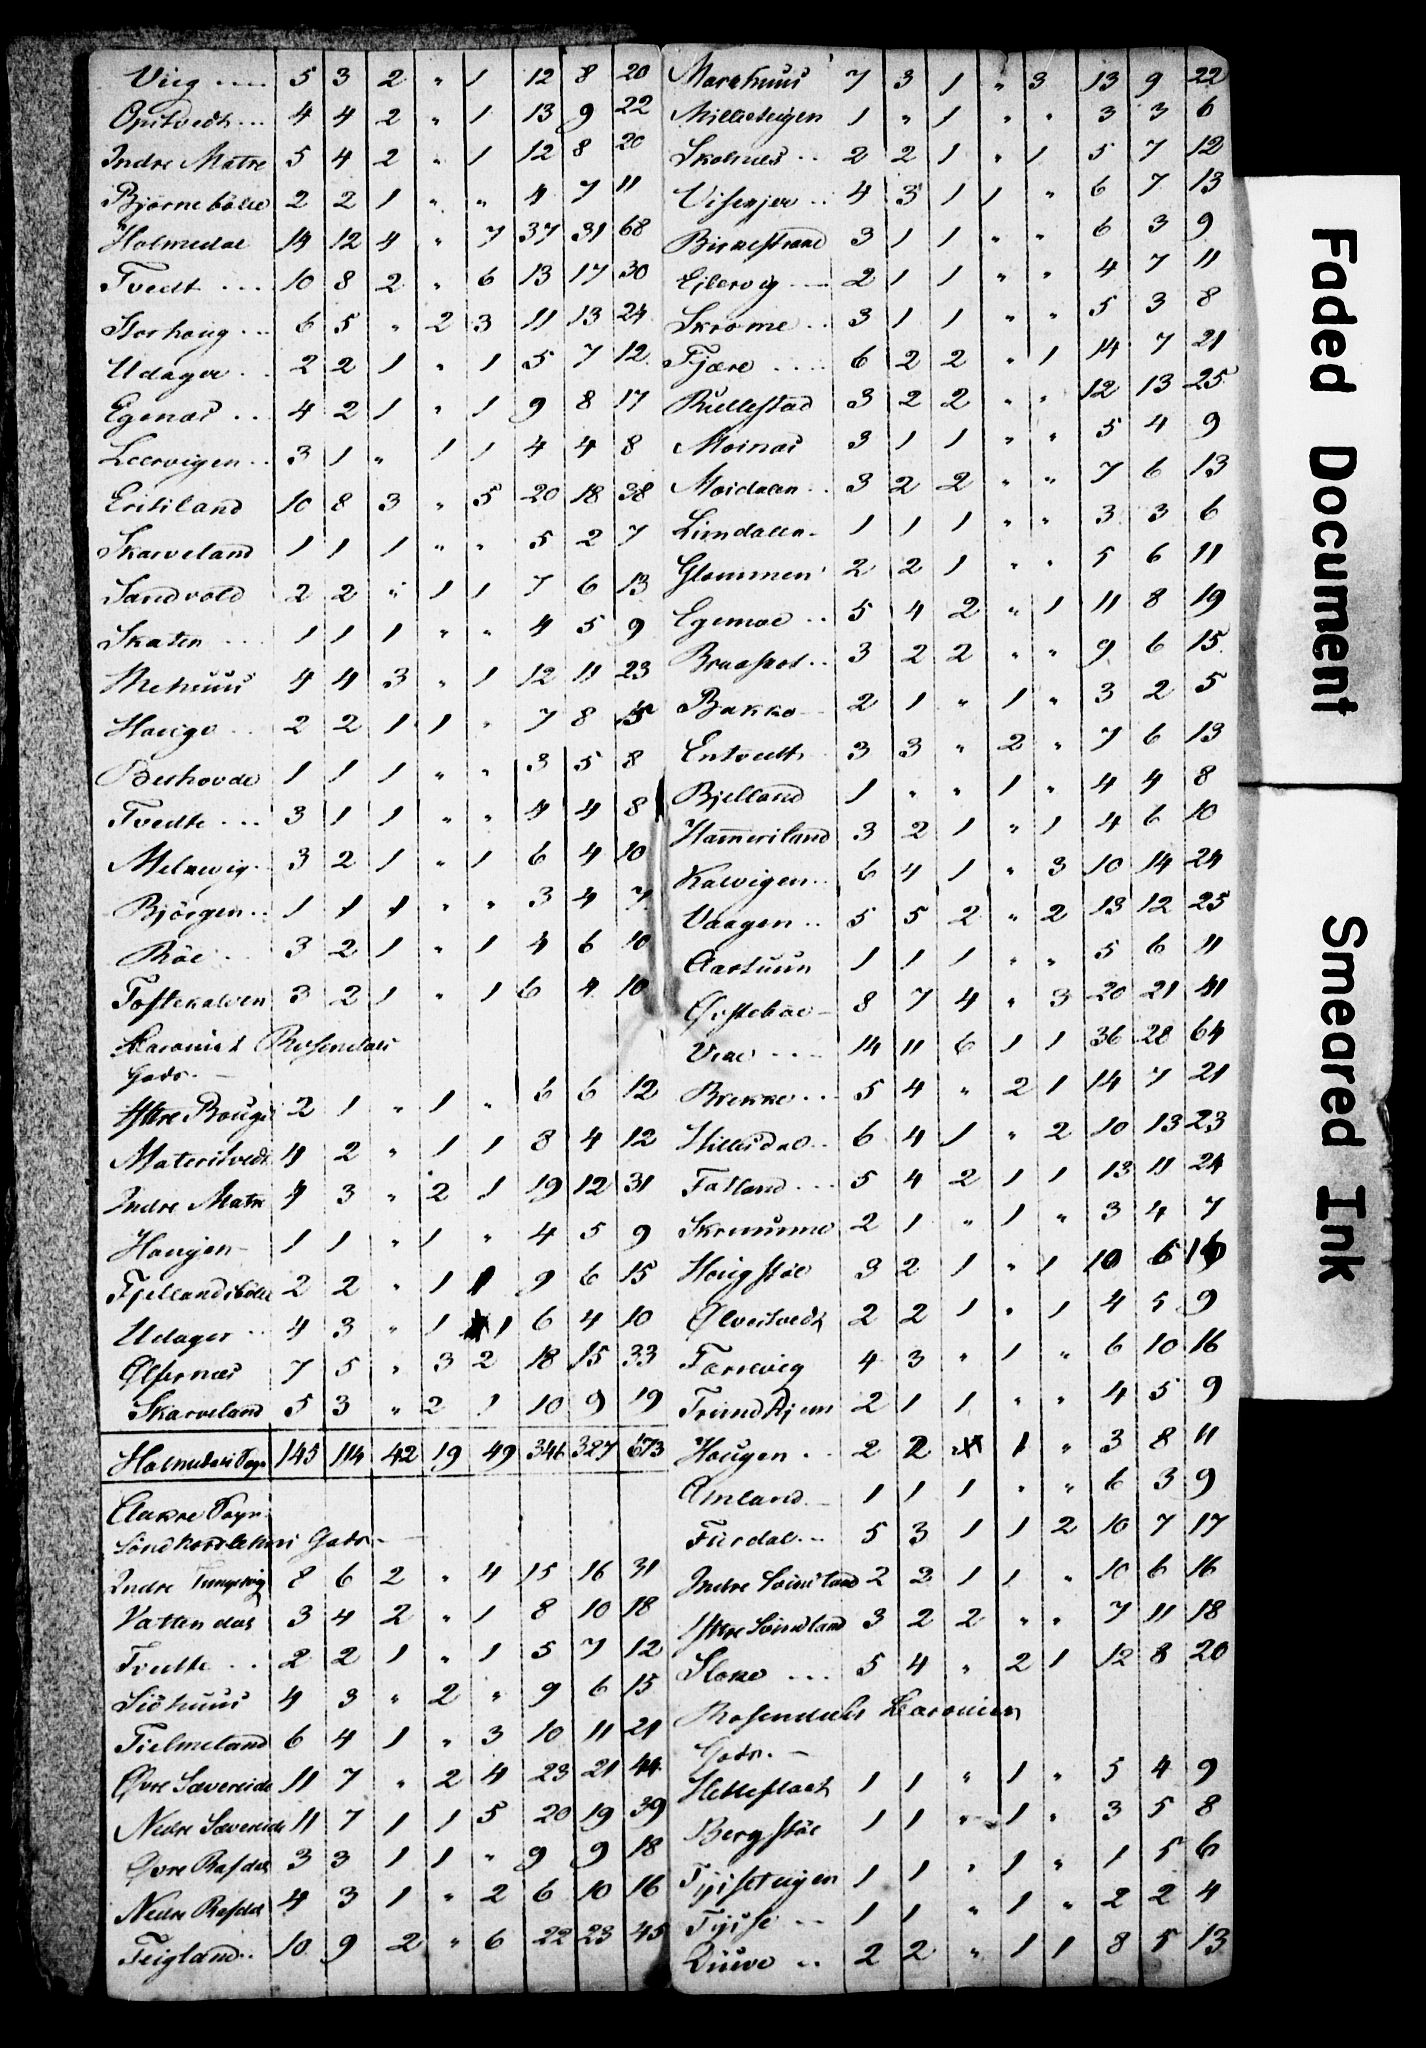 Viig .... 5 3 2 " 1 12 8 20
Opitvedt... 4 4 2 " 1 13 9 22
Indre Matre 5 4 2 " 1 12 8 20
Bjørnebølle 2 2 1 " " 4 7 11
Holmedal 14 12 4 " 7 37 31 68
Tvedt ... 10 8 2 " 6 13 17 30
Storhoug ... 6 5 " 2 3 11 13 24
Udager .. 2 2 1 " 1 5 7 12
Egenæs ... 4 2 1 " 1 9 8 17
Leervigen .. 3 1 " 1 1 4 4 8
Eritsland 10 8 3 " 5 20 18 38
Skarveland 1 1 1 " " 5 2 7
Sandvold 2 2 " 1 1 7 6 13
Skaten ... 1 1 1 " " 4 5 9
Mehuus 4 4 3 " 1 12 11 23
Houge .. 2 2 1 1 " 7 8 15
Bethovde 1 1 1 " " 3 5 8
Tvedte ... 3 1 1 " " 4 4 8
Melsevig .. 3 2 1 " 1 6 4 10
Bjørgen .. 1 1 1 " " 3 4 7
Røe .. 3 2 1 " 1 4 6 10
Toftekalven 3 2 1 " 1 6 4 10
Baroniet Rosendals
Gods. —
Yttre Bouge 2 1 " 1 " 6 6 12
Materstvedt 4 2 " 1 1 8 4 12
Indre Matre 4 3 " 2 1 19 12 31
Hougen - 1 1 " 1 " 4 5 9
Fjellandsbølle 2 2 " 1 1 9 6 15
Udager .. 4 3 " 1 1 6 4 10
Ølfernæs 7 5 " 3 2 18 15 33
Skarveland 5 3 " 2 1 10 9 19
Holmedals Sogn 145 114 42 19 49 346 327 673
Aakre Sogn.
Søndhordlehns Gods —
Indre Tungesvig 8 6 2 " 4 15 16 31
Vattendal 3 4 2 " 1 8 10 18
Tvedte .. 2 2 1 " 1 5 7 12
Siøhuus 4 3 " 2 " 9 6 15
Tielmeland 6 4 1 " 3 10 11 21
Øvre Sævereide 11 7 " 2 4 23 21 44
Nedre Sævereide 11 7 1 1 5 20 19 39
Øvre Rafdal 3 3 1 1 " 9 9 18
Nedre Rafdal 4 3 1 " 2 6 10 16
Teigland .. 10 9 2 " 6 22 23 45
Marchuus 7 3 1 " 3 13 9 22
Milliesteigen 1 " 1 " " 3 3 6
Skolnæs .. 2 2 1 " 1 5 7 12
4 3 1 1 " 6 7 13
Birkestrand 3 1 1 " " 6 3 9
Eilervig ... 2 1 1 " " 4 7 11
Skromme .. 3 1 1 " " 5 3 8
Fjære .... 6 2 2 " 1 14 7 21
Rullestad 3 2 2 " " 12 13 25
Moinæs 3 1 1 " " 5 4 9
Moidalen .. 3 2 2 " " 7 6 13
Limdalen . 1 1 1 " " 3 3 6
Glommen 2 2 1 " " 5 6 11
Egemoe .. 5 4 2 " 1 11 8 19
Braaspot .. 3 2 2 " " 9 6 15
Bakke .. 2 1 " 1 " 3 2 5
Entvedt .. 3 3 " 2 " 7 6 13
Bjelland 1 " " 1 " 4 4 8
Hameriland 3 2 1 " 1 4 6 10
Kalvigen .. 6 4 1 " 3 10 14 24
Vaagen .. 5 5 2 " 2 13 12 25
Aartuun 1 1 1 " " 5 6 11
Østebøe — 8 7 4 " 3 20 21 41
Vine ... 14 11 6 1 1 36 28 64
Brekke ... 5 4 " 2 1 14 7 21
Hillisdal .. 6 4 1 " 2 10 13 23
Fatland ... 5 4 2 1 1 13 11 24
Skrumme 2 1 " 1 " 3 4 7
Hougstøe 3 2 1 " 1 10 6 16
Ølverstvedt 2 2 1 " 1 4 5 9
Farevig 4 3 " 1 " 6 10 16
Trundhjem 2 1 1 " " 4 5 9
Hougen . 2 2 " 1 " 3 8 11
Omland . 1 1 1 " " 6 3 9
Furdal ... 5 3 1 1 2 10 7 17
Indre Sundland 2 2 1 1 " 10 6 16
Yttre Sundland 3 2 2 " " 7 11 18
Stone ... 5 4 " 2 1 12 8 20
Rosendals Baronies
Gods. —
Hetleflaat 1 1 " 1 " 5 4 9
Bergstøe 1 1 " 1 " 3 5 8
1 1 " 1 " 1 5 6
Fjøse .. 1 1 " 1 " 2 2 4
Duuve .. 2 2 " 1 1 8 5 13
Faded Document
Smeared Ink